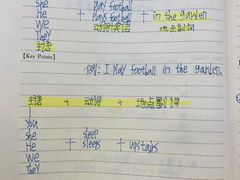 She
He + play football + in the garden
We play football
They 动词英语 地点副词
主语
[Key Points]
例: I play football in the garden.
主语 + 动词 + 地点副词
I
you
she sleep
He + sleeps + upstairs
We
They